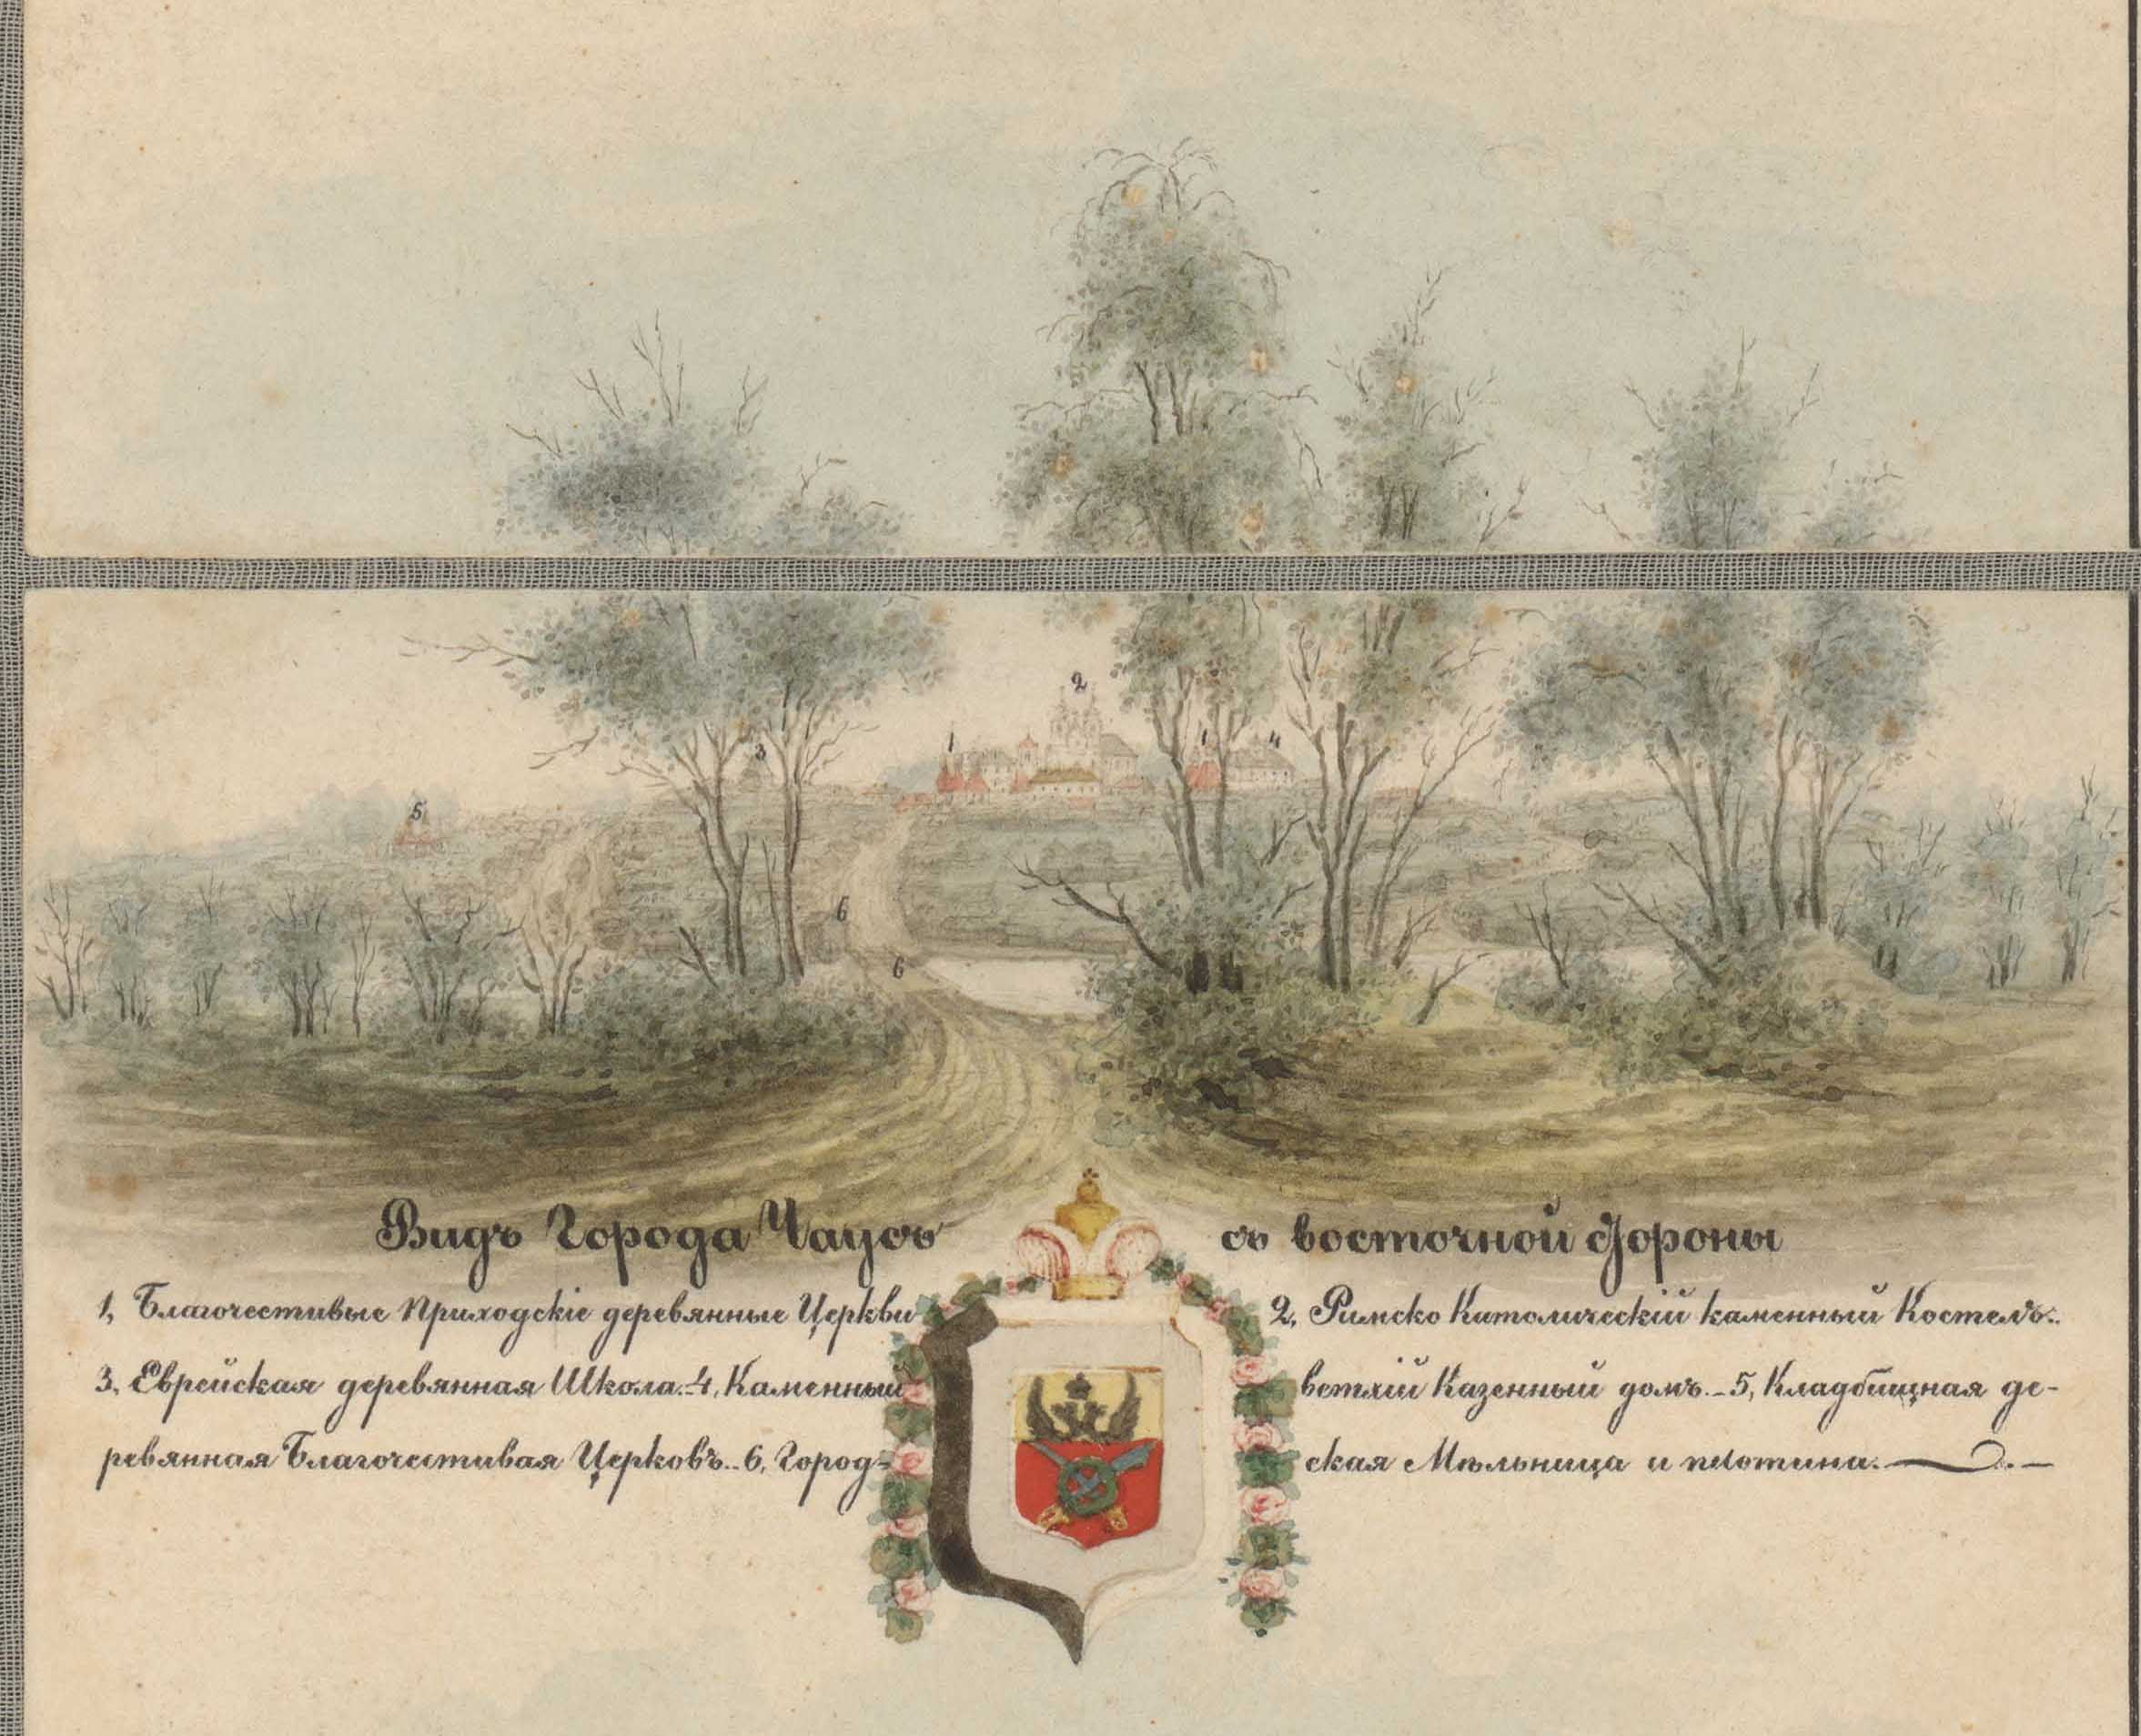 2
3
1
1
4
5
6
6
Видъ Города Чаусъ съ восточной стороны
1, Благочестивые Приходскіе деревянные Церкви 2, Римско Католическій каменный Костелъ.
3, Еврейская деревянная Школа.-4, Каменный ветхій Казенный домъ.-5, Кладбищная де-
ревянная Благочестивая Церковъ..6, Город- ская Мѣльница и плотина.